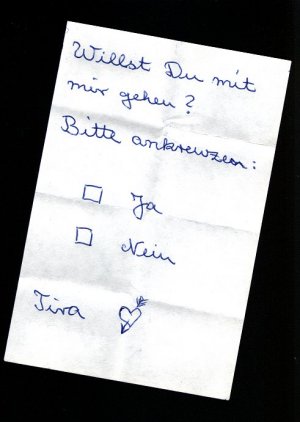 Willst Du mit
mir gehen?
Bitte ankreuzen:
Ja
Nein
Tina